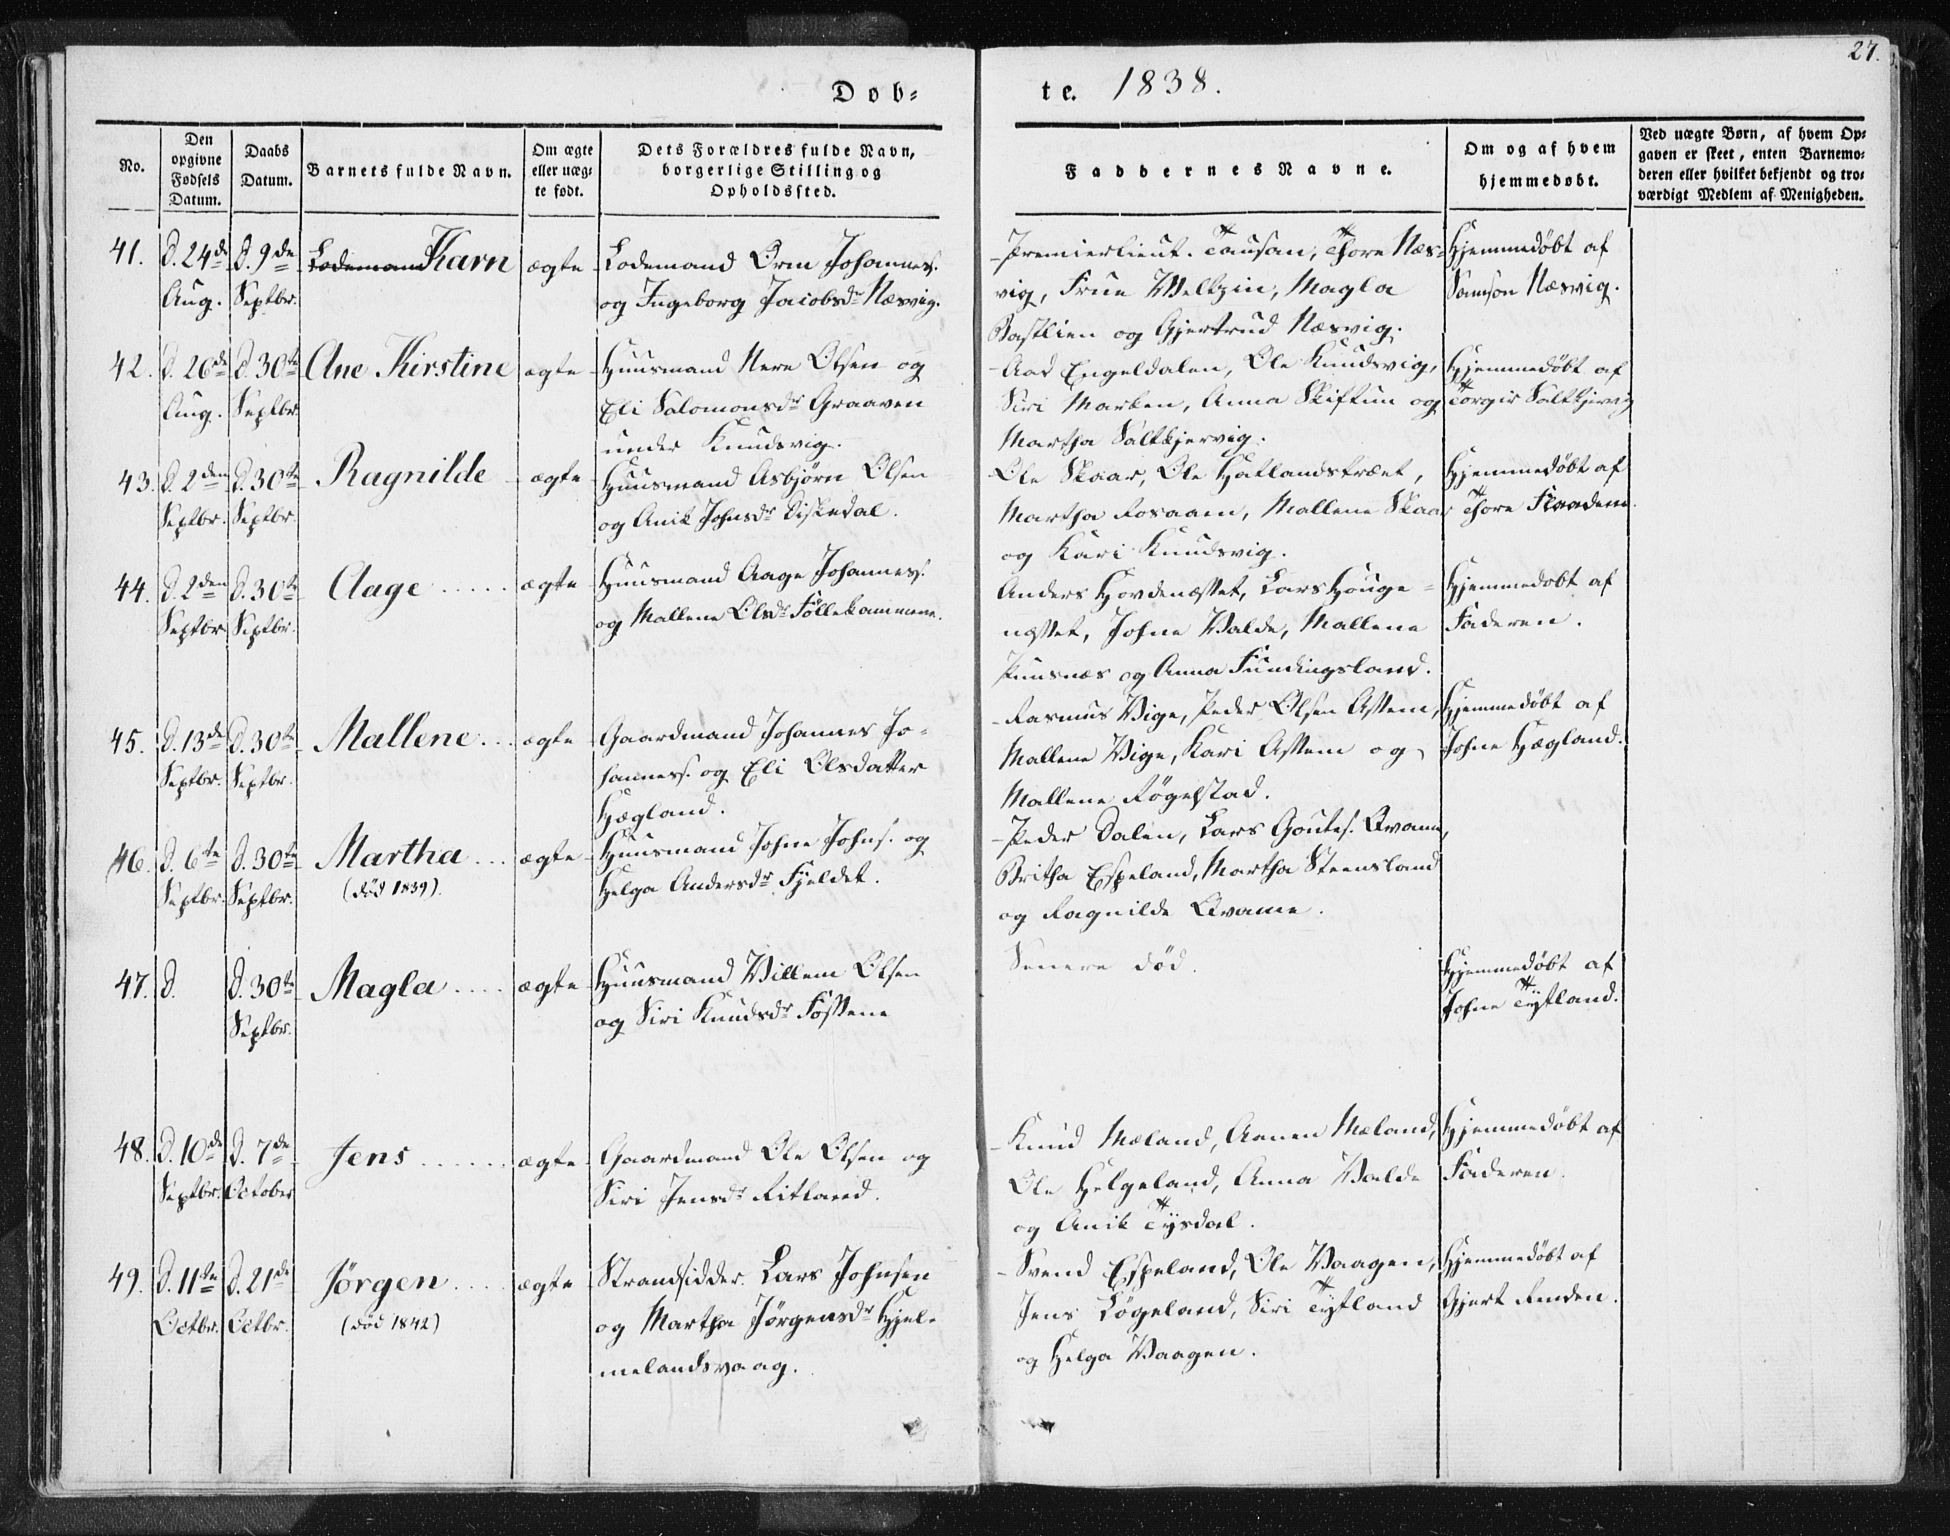 27.
Døb-
te. 1838.
No.
Den opgivne Fødsels Datum.
Daabs Datum.
Barnets fulde Navn.
Om ægte eller uæg-
te født.
Dets Forældres fulde Navn,
borgerlige Stilling og
Opholdssted.
Faddernes Navne.
Om og af hvem
hjemmedøbt.
Ved uægte Børn, af hvem Op-
gaven er skeet, enten Barnemo-
deren eller hvilket bekjendt og tro-
værdigt Medlem af Menigheden.
41.
d. 24de
Aug.
d. 9de
Septbr.
Lodemand Karn
ægte
Lodemand Orm Johannes.
og Ingeborg Jacobsdr Næsvig.
Premierlieut. Tausan, Thore Næs-
vig, Frue Weltzin, Magla
Bastlien og Gjertrud Næsvig.
Hjemmedøbt af
Samson Næsvig.
42.
d. 26de
Aug.
d. 30te
Septbr.
Ane Kirstine
ægte
Huusmand Nere Olsen og
Eli Salomonsdr Graaven
under Knudsvig.
Aad Engeldalen, Ole Knudsvig,
Siri Marken, Anna Skiftun og
Martha Saltkjervig.
Hjemmedøbt af
Torgir Saltkjervig
43.
d. 2den
Septbr.
d. 30te
Septbr.
Ragnilde
ægte
Huusmand Asbjørn Olsen
og Anik Johnsdr Diskedal.
Ole Skaar, Ole Hatlandstræet,
Martha Rosaaen, Mallene Skaar
og Kari Knudsvig.
Hjemmedøbt af
Thore
44.
d. 2den
Septbr
d. 30te
Septbr.
Aage
ægte
Huusmand Aage Johannes.
og Mallene Olsdr Føllekammene.
Anders Hovdenæsset, Lars Houge-
næsset, Johne Valde, Mallene
Puusnæs og Anna Fundingsland.
Hjemmedøbt af
Faderen.
45.
d. 13de
Septbr.
d. 30te
Septbr.
Mallene
ægte
Gaardmand Johannes Jo-
hannes. og Eli Olsdatter
Hægland.
Rasmus Vige, Peder Olsen Assem,
Mallene Vige, Kari Assem og
Mallene Røgelstad.
Hjemmedøbt af
Johne Hægland.
46.
d. 6te
Septbr.
d. 30te
Septbr.
Martha
(død 1839).
ægte
Huusmand Johne Johns. og
Helga Andersdr Fjeldet.
Peder Dalen, Lars Goutes. Qvame,
Britha Espeland, Martha Steensland
og Ragnilde Qvame.
47.
d.
d. 30te
Septbr.
Magla
ægte
Huusmand Villem Olsen
og Siri Knudsdr Fossene
Senere død.
Hjemmedøbt af
Johne Tytland.
48.
d. 10de
Septbr.
d. 7de
October
Jens
ægte
Gaardmand Ole Olsen og
Siri Jensdr Ritland.
Knud Mæland, Aanen Mæland,
Ole Helgeland, Anna Valde
og Anik Tysdal.
Hjemmedøbt af
Faderen.
49.
d. 11te
Octbr.
d. 21de
Octbr.
Jørgen
(død 1842)
ægte
Strandsidder. Lars Johnsen
og Martha Jørgensdr Hjel-
melandsvaag.
Svend Espeland, Ole Vaagen,
Jens Løgeland, Siri Tytland
og Helga Vaagen.
Hjemmedøbt af
Gjert Renden.